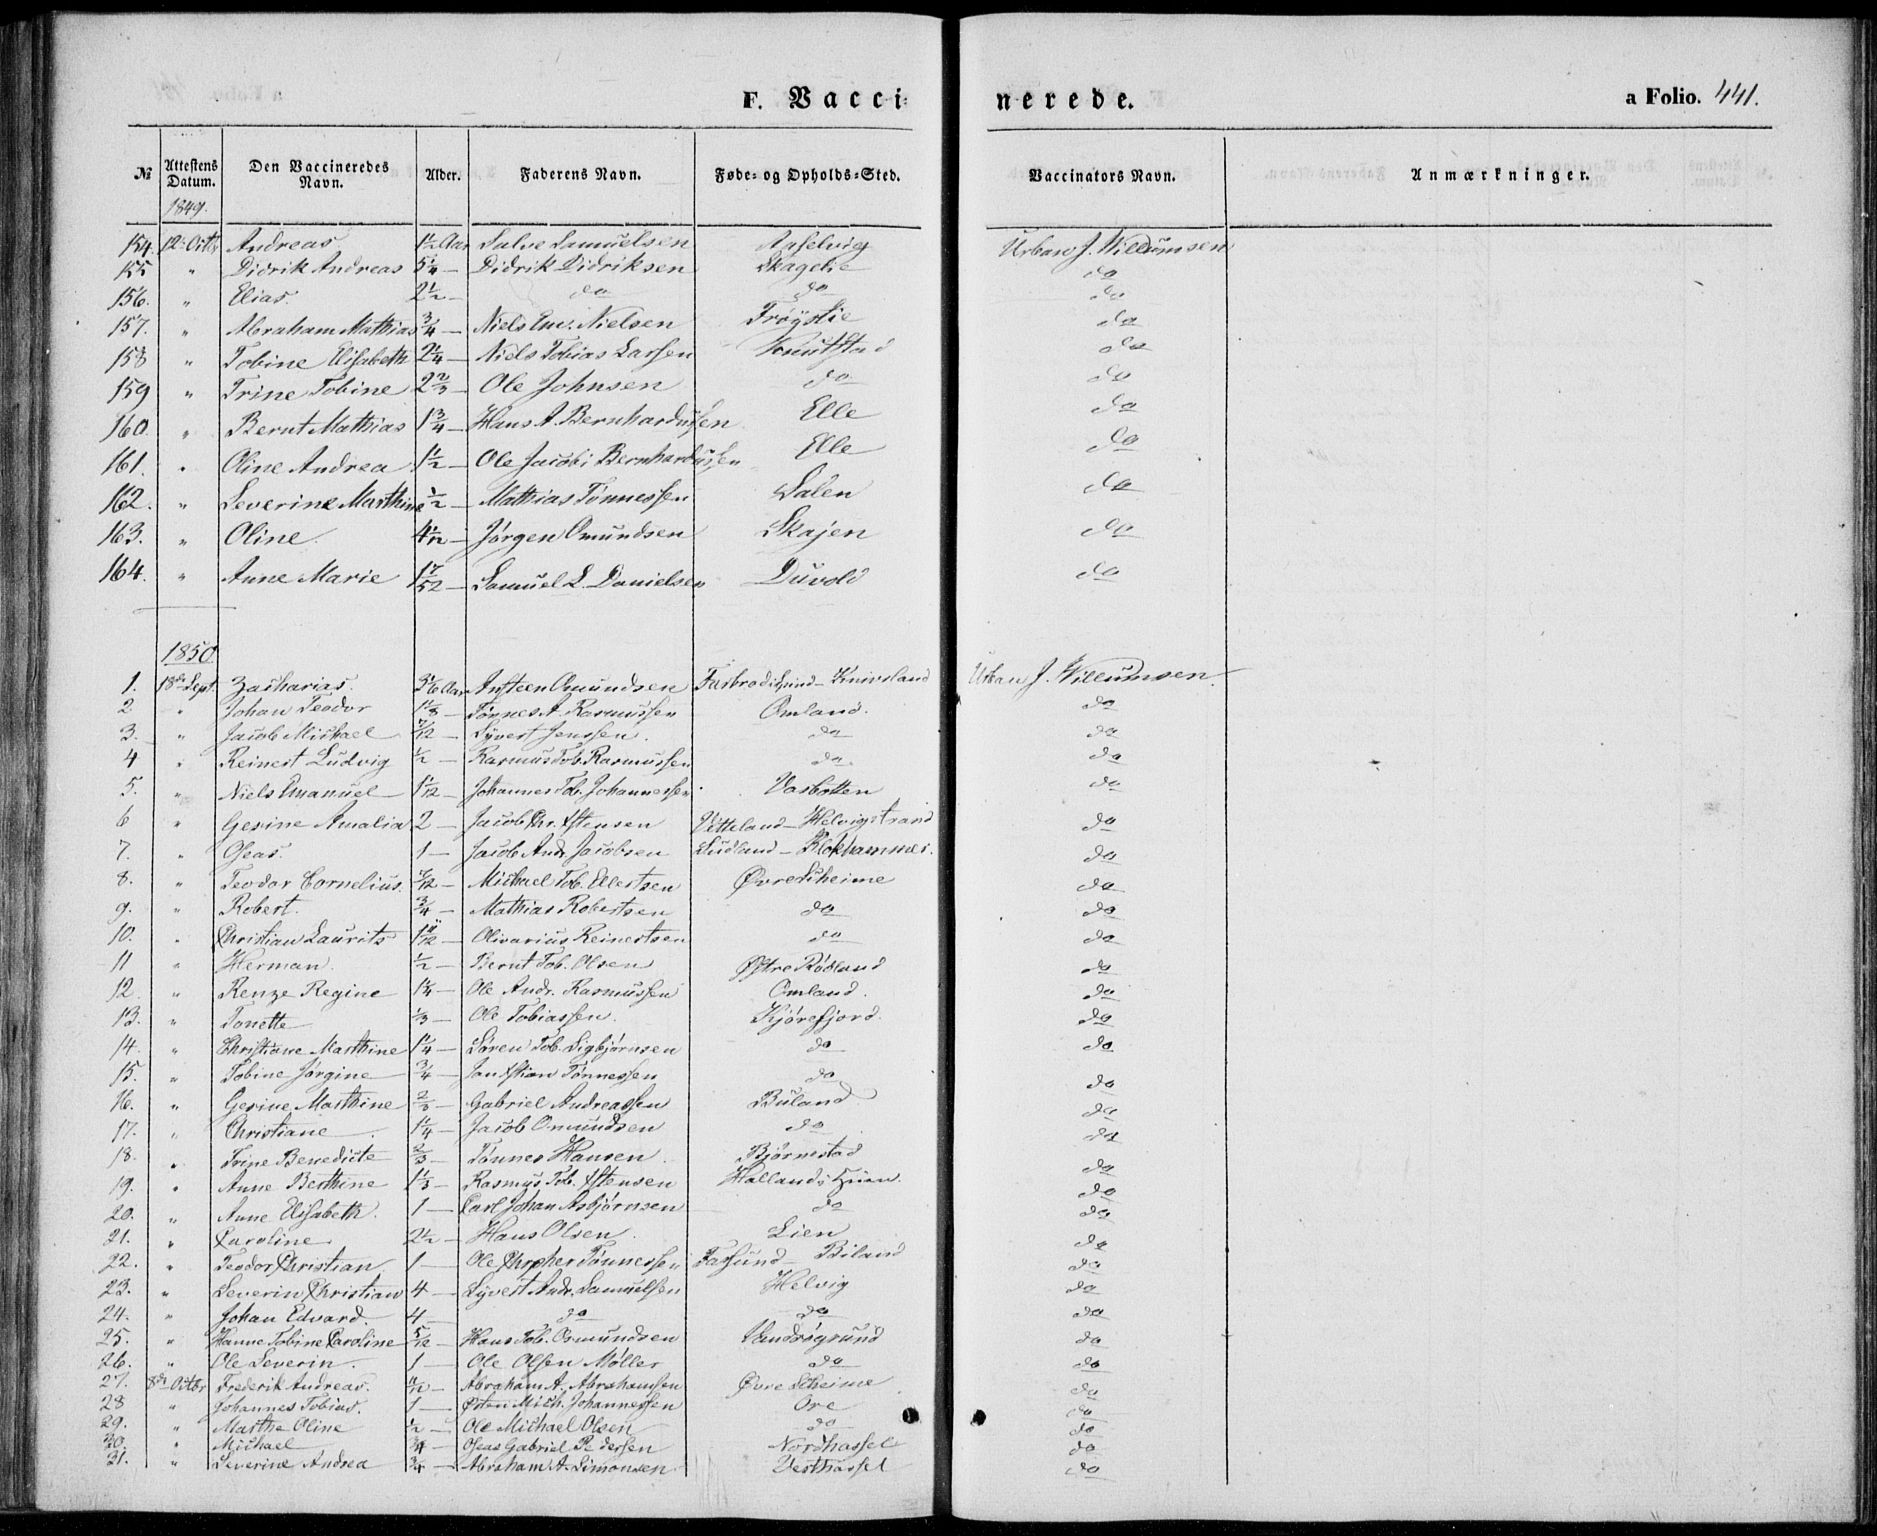 F. Vacci=nerede. a Folio. 441.
№ Attestens Datum. Den Vaccineredes Navn. Alder. Faderens Navn. Føde- og Opholds-Sted. Vaccinators Navn. Anmærkninger.
1849.
154. 12te Octbr Andreas 1½ Aar Salve Samuelsen Urban J. Willumsen
155 " Didrik Andreas 5¼ — Didrik Didriksen Skagelie do
156. " Elias 2½ — do do do
157. " Abraham Mathias ¾ — Niels Em. Nielsen Trøystie do
158 " Tobine Elisabeth 2¼ — Niels Tobias Larsen Knutstad do
159 " Trine Tobine 2⅔ — Ole Johnsen do do
160. " Bernt Mathias 1¾ — Hans A. Bernhardussen Elle do
161. " Oline Andrea 1½ — Ole Jacobi Bernhardussen Elle do
162. " Severine Marthine ½ — Mathias Tønnessen Dalen do
163. " Oline 4½ — Jørgen Omundsen Skajen do
164. " Anne Marie 1 7/52 — Samuel L. Danielsen Duvold do
1850
1. 18de Sept. Zacharias Aar Østeen Omundsen Knivsland Urban J. Willumsen
2. " Johan Teodor 1⅛ — Tønnes A. Rasmussen Omland. do
3. " Jacob Michael 7/12 — Syvert Jenssen. do do
4 " Reinert Ludvig ½ — Rasmus Tob. Rasmussen do. do
5. " Niels Emanuel 1 1/12 — Johannes Tob. Johannessen Vasbotten do
6 " Gesine Amalia 2 — Jacob Chr. Istensen Vetteland — Helvigstrand do
7. " Oseas. 1 — Jacob Andr. Jacobsen Sudland — Blokhammer. do
8. " Teodor Cornelius. — Michael Tob. Ellertsen Øvre Scheime do
9. " Robert. ¾ — Mathias Robertsen do do
10. " Christian Laurits — Olivarius Reinertsen do do
11 " Herman. ½ — Bernt Tob. Olsen Østre Rødland do
12. " Renze Regine 1¼ — Ole Andr. Rasmussen Omland. do
13. " Tonette ⅓ — Ole Tobiassen. Kjørefjord. do
14. " Christiane Marthine 1¼ — Søren Tob. Sigbjørnsen do do
15. " Tobine Jørgine ¾ — Jan Tønnessen do do
16. " Gesine Marthine ⅔ — Gabriel Andreassen Buland do
17. " Christiane 1¼ — Jacob Omundsen do do
18. " Trine Benedicte ⅔ — Tønnes Hansen. Bjørnestad do
19. " Anne Berthine 1⅓ — Rasmus Tob. Istensen do
20. " Anne Elisabeth. 1 — Carl Johan Asbjørnsen do do
21. " Caroline 2½ — Hans Olsen. Lien do
22. " Teodor Christian 1 — Ole Chrpher Tønnessen Farsund — Biland do
23. " Severin Christian 4 — Syvert Andr. Samuelsen Helvig do
24. " Johan Edvard. 4 — do do do
25. " Hanne Tobine Caroline 5/12 — Hans Tob. Osmundsen Vandrøgrund do
26. " Ole Severin. 1 — Ole Olsen Møller do do
27. 8de Octbr Frederik Andreas. — Abraham A. Abrahamsen Øvre Scheime do
28 " Johannes Tobias. 1 — Østen Mich. Johannessen Ore do
29. " Marthe Oline ½ — Ole Michael Olsen do do
30. " Michael ¾ — Oseas Gabriel Pedersen Nordhassel do
31. " Severine Andrea ¾ — Abraham A. Simonsen Vesthassel do